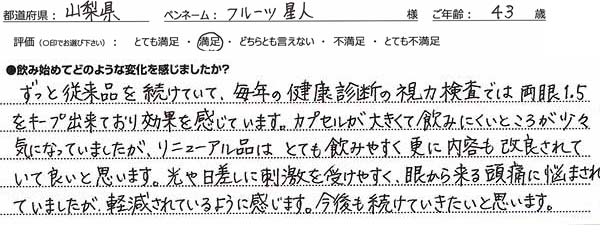 都道府県：山梨県 ペンネーム：フルーツ星人 様 ご年齢：43 歳
評価（○印でお選び下さい）：とても満足・満足・どちらとも言えない・不満足・とても不満足
●飲み始めてどのような変化を感じましたか？
ずっと従来品を続けていて、毎年の健康診断の視力検査では両眼1.5
をキープ出来ており効果を感じています。カプセルが大きくて飲みにくいところが少々
気になっていましたが、リニューアル品はとても飲みやすく更に内容も改良されて
いて良いと思います。光や日差しに刺激を受けやすく、眼から来る頭痛に悩まされ
ていましたが、軽減されているように感じます。今後も続けていきたいと思います。